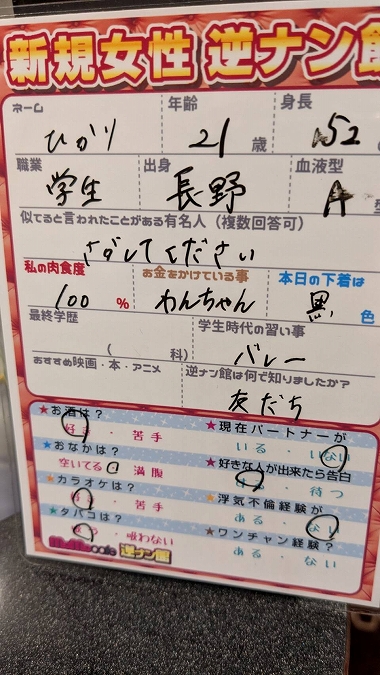 新規女性 逆ナン館
ネーム 年齢 身長
ひかり 21歳 152
職業 出身 血液型
学生 長野 A型
似てると言われたことがある有名人(複数回答可)
さがしてください
私の肉食度 お金をかけている事 本日の下着は
100% わんちゃん 黒色
最終学歴 学生時代の習い事
( 科) バレー
おすすめ映画・本・アニメ 逆ナン館は何で知りましたか?
友だち
★お酒は? ★現在パートナーが
好き・苦手 いる・いない
★おなかは? ★好きな人が出来たら告白
空いてる 満腹 ・待つ
★カラオケは? ★浮気不倫経験が
・苦手 ある・ない
★タバコは? ★ワンチャン経験?
・吸わない ある・ない
cafe 逆ナン館